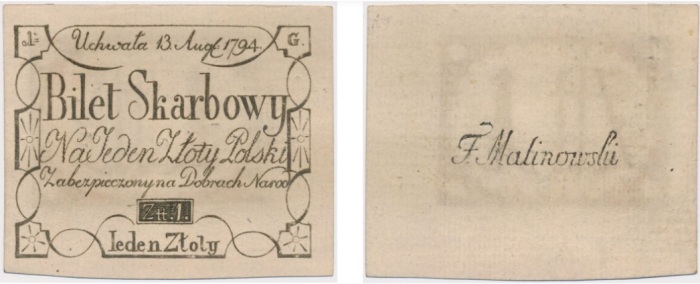 .1. G.
Uchwała 13. Augᵗ 1794
Bilet Skarbowy
Na Jeden Złoty Polski
Zabezpieczony na Dobrach Narod
Zł: 1.
Ieden Złoty
F. Malinowski